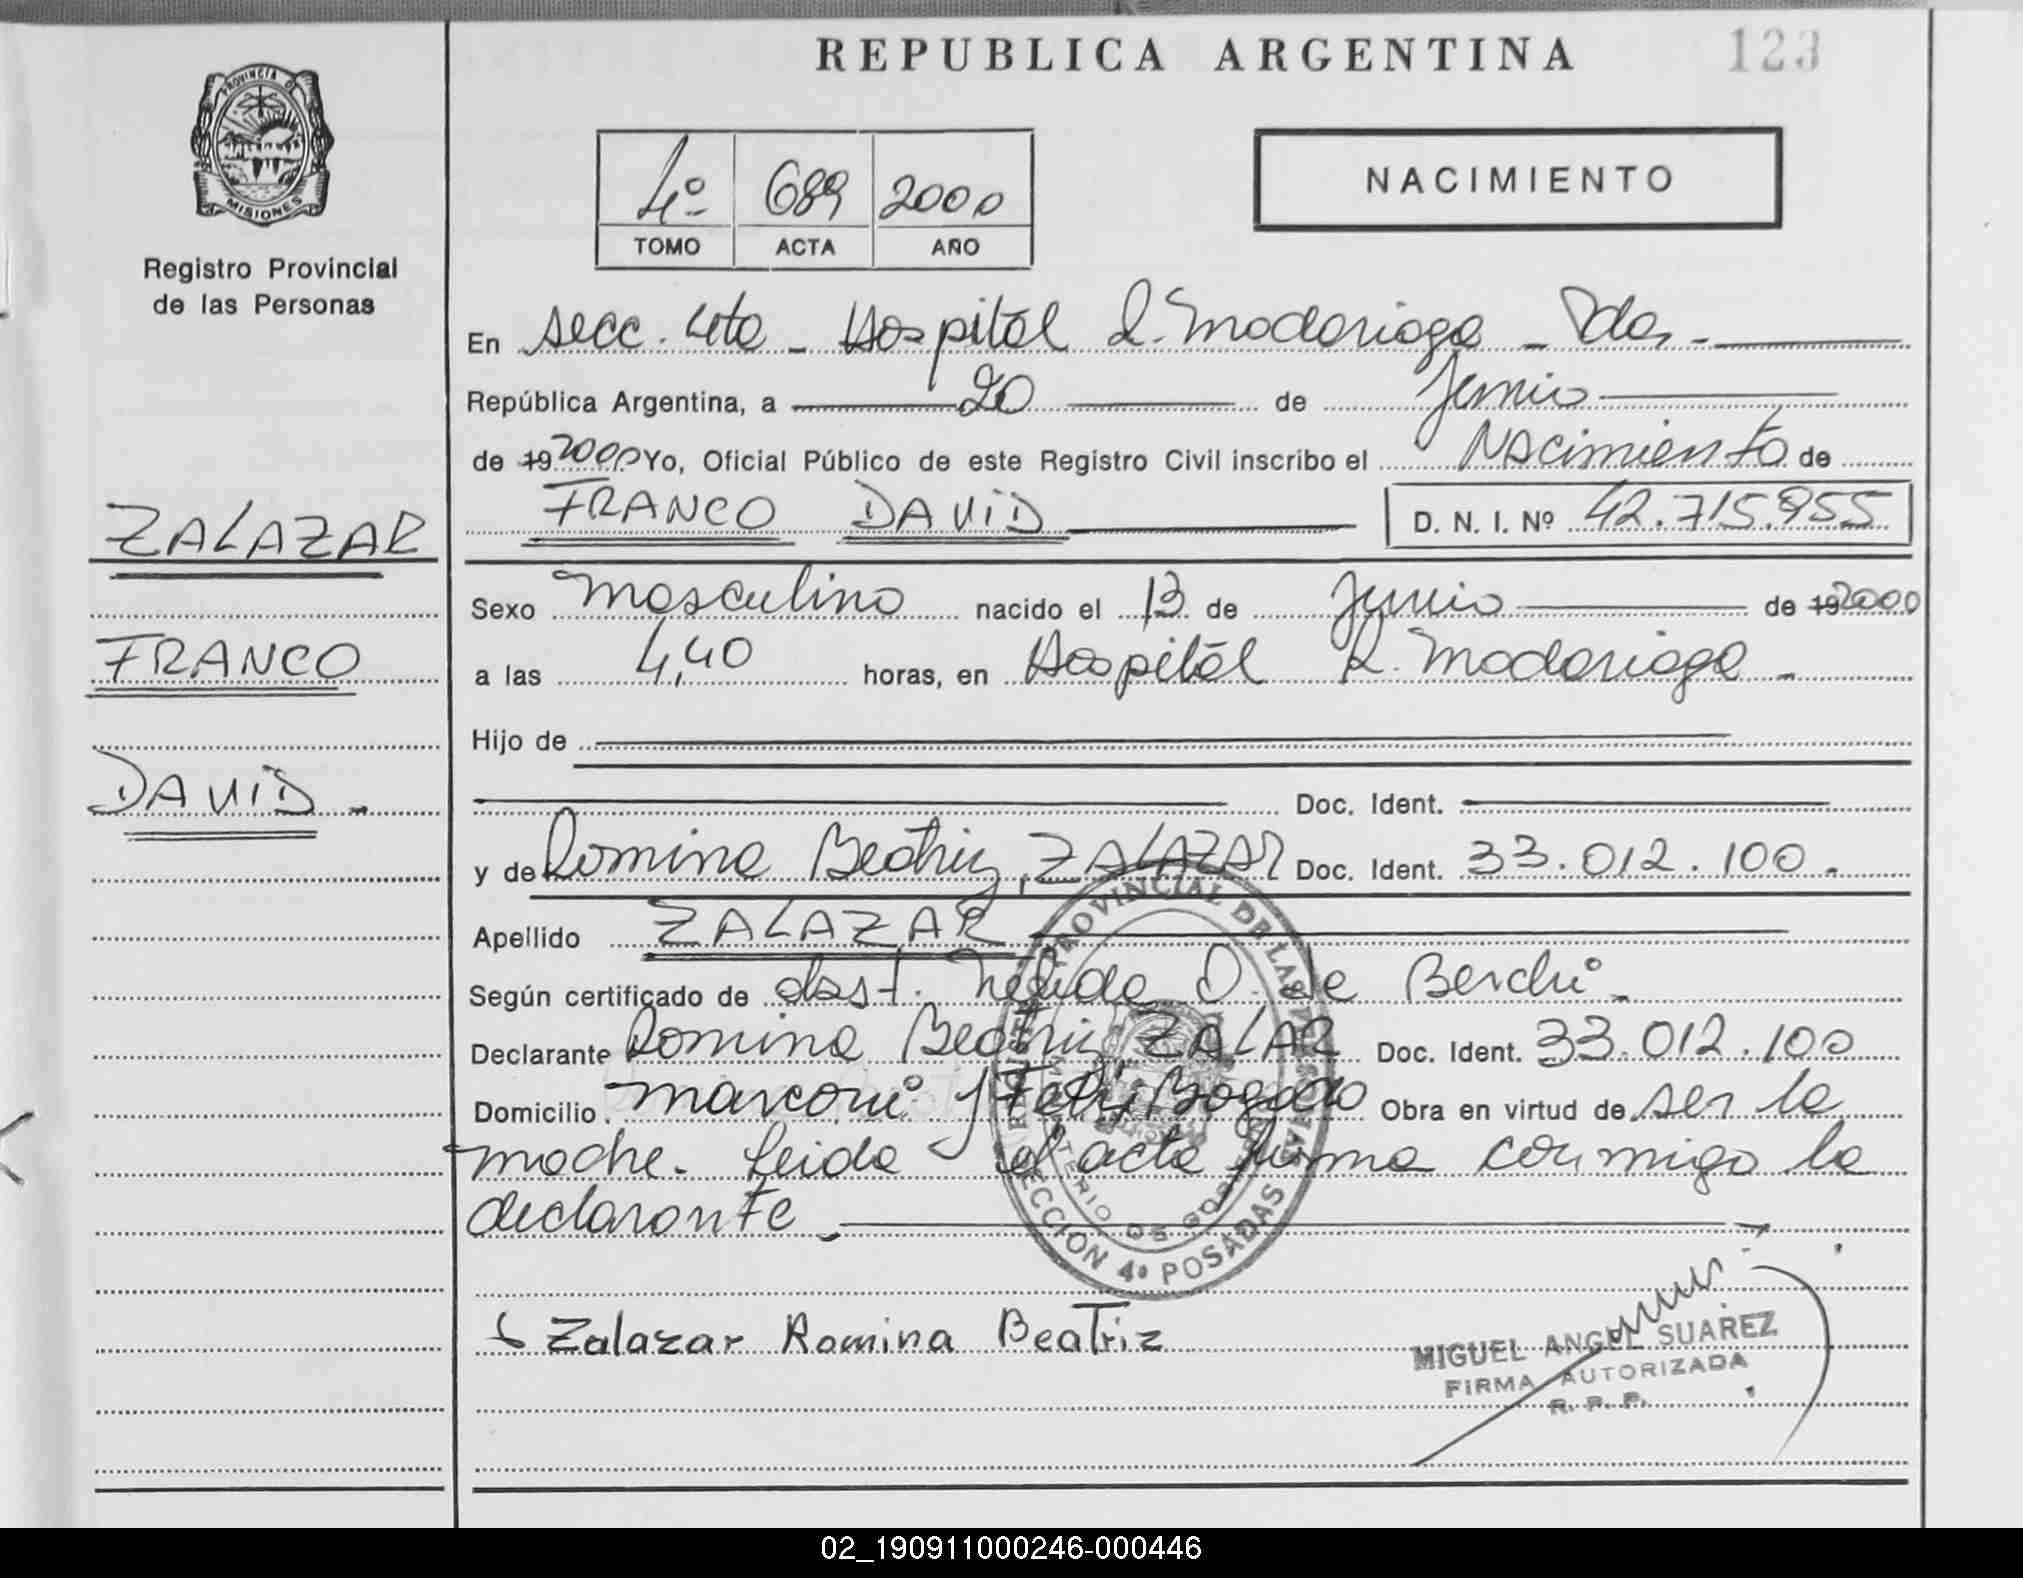 REPUBLICA ARGENTINA
123
PROVINCIA DE
MISIONES
Registro Provincial
de las Personas
4º 689 2000
TOMO ACTA AÑO
NACIMIENTO
En Secc. 4ta - Hospital R. Madariaga - Pdas -
República Argentina, a 20 de Junio
de 19 2000 Yo, Oficial Público de este Registro Civil inscribo el Nacimiento de
FRANCO DAVID D. N. I. Nº 42.715.955
ZALAZAR
FRANCO
DAVID -
Sexo Masculino nacido el 13 de Junio de 19 2000
a las 4,40 horas, en Hospital R. Madariaga -
Hijo de
Doc. Ident.
y de Romina Beatriz, ZALAZAR Doc. Ident. 33.012.100.
Apellido ZALAZAR
Según certificado de obst. Nelida D. de Berchi -
Declarante Romina Beatriz ZALAR Doc. Ident. 33.012.100
Domicilio Marconi y Bogado Obra en virtud de ser la
madre. Leida el acta firma conmigo la
declarante
PROVINCIAL DE LAS PERSONAS
SECCION 4ª POSADAS
Zalazar Romina BeaTriz
MIGUEL ANGEL SUAREZ
FIRMA AUTORIZADA
R. P. P.
02_190911000246-000446